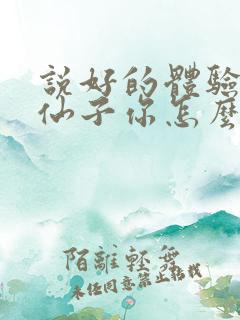 說好的體驗
仙子你怎麼
陌離輕舞
未經同意禁止轉載